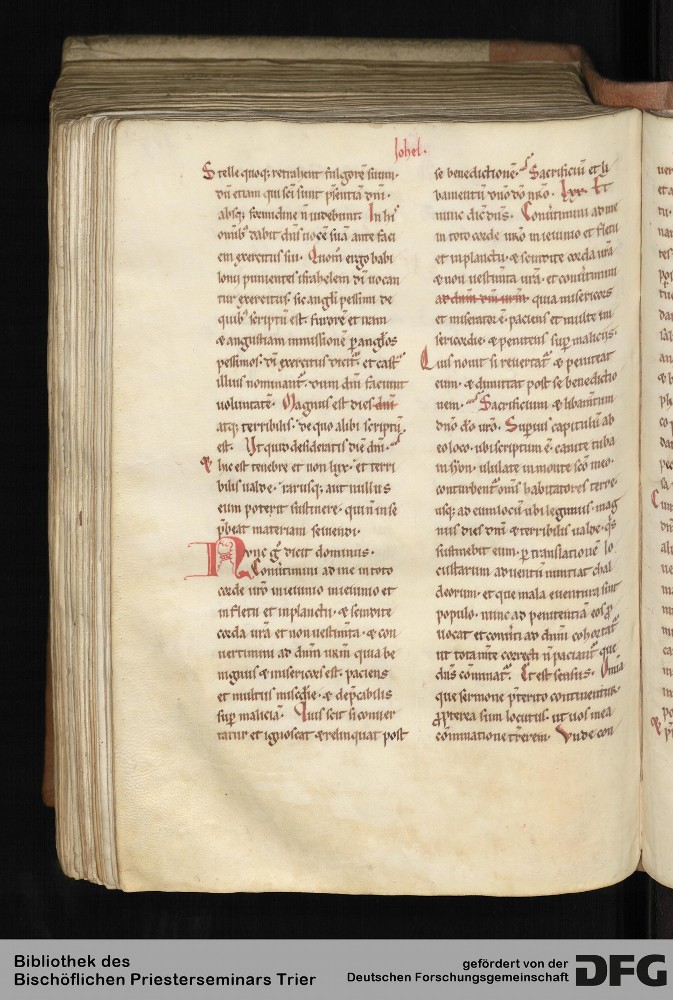 Johel.
Stelle quoq; retrahent fulgorē suum.
dū etiam qui sc̄i sunt p̄sentia dn̄i.
absq; formidine ñ uidebunt. In his
omīb; dabit dn̄s uocē suā ante faci
em exercitus sui. Quom̄ ergo babi
lonii punientes israhelem dī uocan
tur exercitus. sic angli pessimi de
quib; scriptū est. furorē et iram
& angustiam inmissionē p anglos
pessimos. dī exercitus dicit᷑. et cast᷑
illius nominant᷑. dum dn̄i faciunt
uoluntatē. Magnus est dies dn̄i
atq; terribilis. de quo alibi scriptū
est. Ut quid desideratis diē dn̄i.
& hic est tenebre et non lux. et terri
bilis ualde. rarusq; aut nullus
eum poterit sustinere. qui ñ in se
p̄beat materiam seuiendi.
Nunc g̊ dicit dominus.
Conūtimini ad me in toto
corde ur̄o in ieiunio in ieiunio et
in fletu et in planctu. & scindite
corda ur̄a et non uestim̄ta. & con
uertimini ad dn̄m ur̄m quia be
nignus & misericors est. paciens
et multus misc̄die. & dep̄cabilis
sup̱ maliciā. Quis scit si conuer
tatur et ignoscat & relinquat post
se benedictionē. Sacrificiū et li
bamentū dn̄o dō nr̄o. lxx. Et
nunc dic̄ dn̄s. Conūtimini ad me
in toto corde ur̄o in ieiunio et fletu
et in planctu. & scindite corda ur̄a
& non uestim̄ta ur̄a. et conūtimini
ad dn̄m dm̄ ur̄m. quia misericors
et miserator ē. paciens et multe mi
sericordie. & penitens sup̱ maliciis.
Quis nouit si reuertat᷑ & peniteat
eum. & dimittat post se benedictio
nem. Sacrificium & libam̄tum
dn̄o dō ur̄o. Superius capitulū ab
eo loco. ubi scriptum ē. canite tuba
in syon. ululate in monte sc̄o meo.
conturbent᷑ om̄s habitatores terre.
usq; ad eum locū ubi legimus. mag
nus dies dn̄i & terribilis ualde. q̇s
sustinebit eum. p translationē lo
custarum aduentū nuntiat chal
deorum. et que mala euentura sint
populo. nunc ad penitentiā eos p̱
uocat et conūti ad dn̄m cohortat᷑
ut tota m̄te correcti ñ paciant᷑ que
dn̄s cōminat᷑. Et est sensus. Omīa
que sermone p̄terito continentur.
propterea sum locutus. ut uos mea
cōminatione tr̄erem. Unde con
Bibliothek des
Bischöflichen Priesterseminars Trier
gefördert von der
Deutschen Forschungsgemeinschaft
DFG